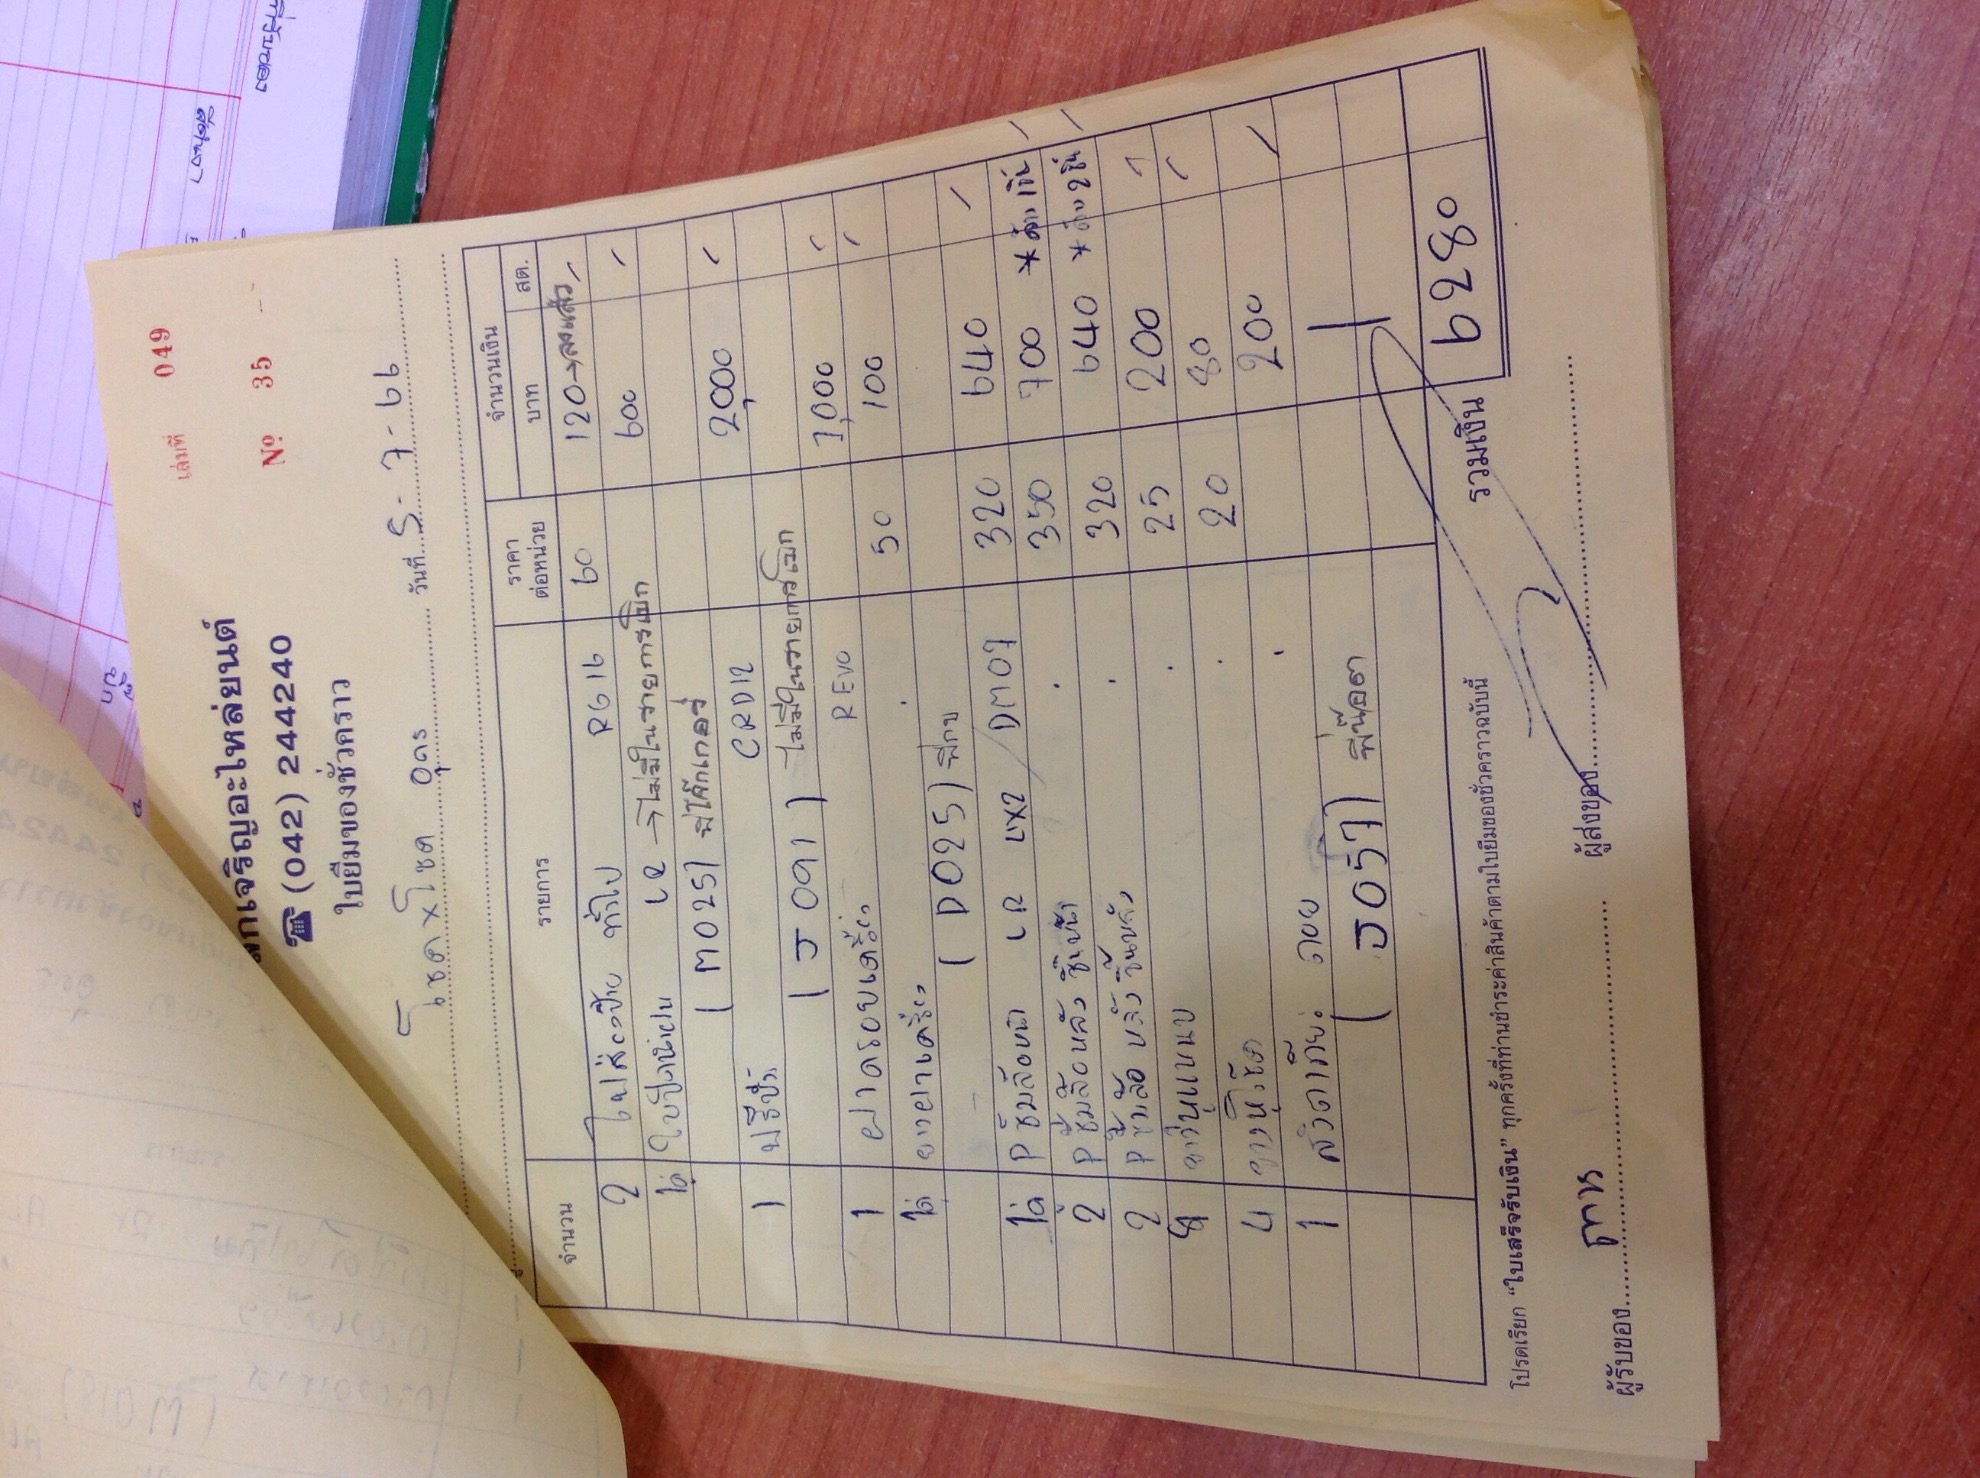 เล่มที่ 049
№ 35
เจริญอะไหล่ยนต์
☎ (042) 244240
ใบยืมของชั่วคราว
โชค x โชค อุดร วันที่ 5-7-66
จำนวน รายการ ราคาต่อหน่วย จำนวนเงิน บาท สต.
2 ไฟส่องป้าย ทั่วไป RG16 60 120 → ลงแล้ว
ใบปัดน้ำฝน LR → ไม่มีในรายการเบิก 600
(M025)
1 ฟรีปั๊ว CRD12 2,000
(J091) ไม่มีในรายการเบิก
1 ฝาครอบเครื่อง REVO 1,000
ยางฝาเครื่อง 50 100
(D025)
P ซัมล้อหน้า LR DM07 320 640
2 P ซัมล้อหลัง ชิ้นหน้า 350 700
2 P ซัมล้อ หลัง ชิ้นหลัง 320 640
8 25 200
4 ยางหูโช๊ค 20 80
1 200
(J057) พี่น๊อต
รวมเงิน 6280
โปรดเรียก "ใบเสร็จรับเงิน" ทุกครั้งที่ท่านชำระค่าสินค้าตามใบยืมของชั่วคราวฉบับนี้
ผู้รับของ ผู้ส่งของ